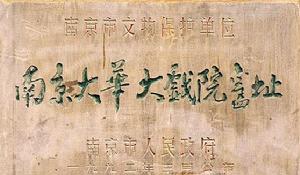 南京市文物保护单位
南京大華大戲院舊址
南京市人民政府
一九九二年